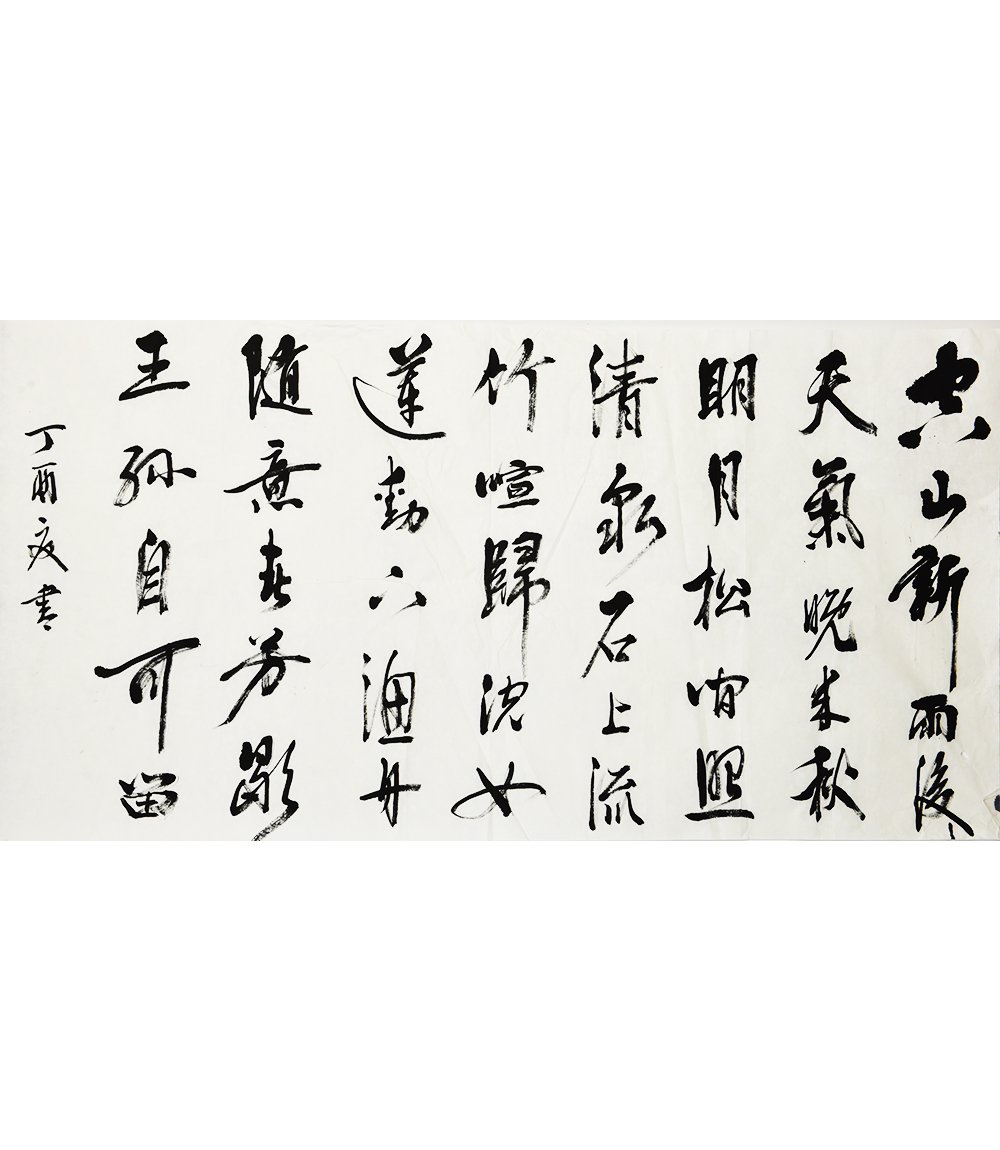 空山新雨後
天氣晚来秋
明月松間照
清泉石上流
竹喧歸浣女
蓮動下漁舟
随意春芳歇
王孫自可留
丁酉夏書